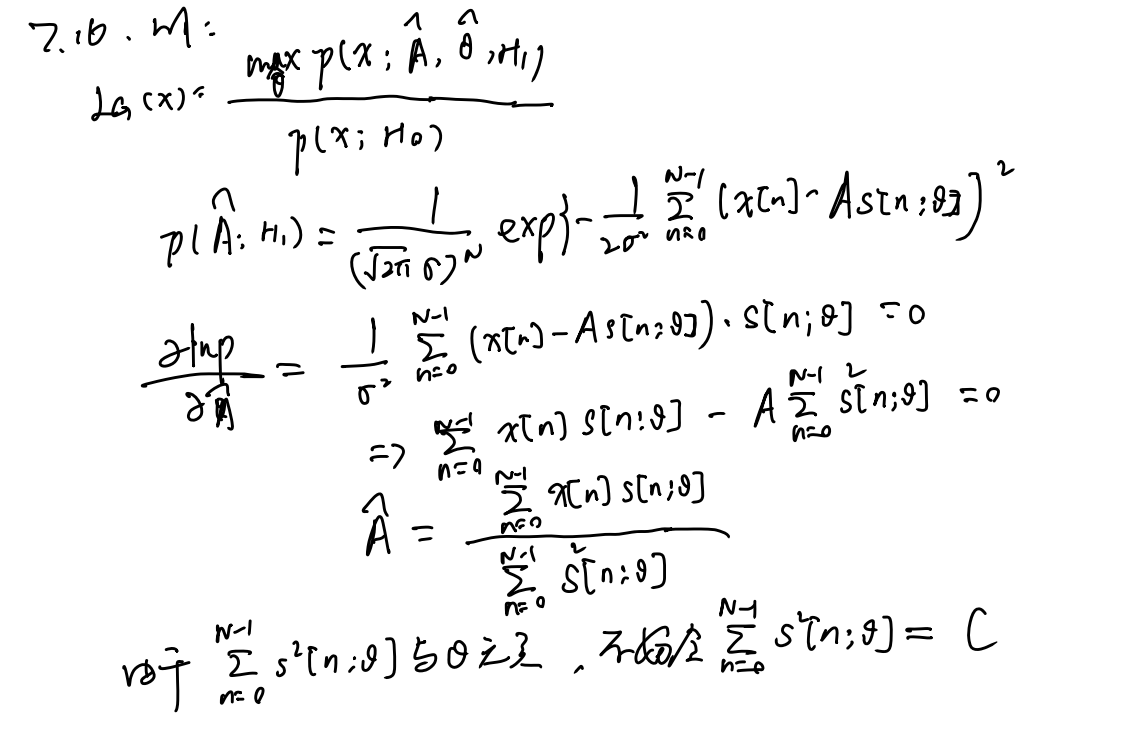 7.16. 解:
L_G(x) = \frac{\max_{\theta} p(x; \hat{A}, \hat{\theta}, H_1)}{p(x; H_0)}
p(\hat{A}; H_1) = \frac{1}{(\sqrt{2\pi} σ)^N} exp\{-\frac{1}{2σ^2} \sum_{n=0}^{N-1} (x[n] - As[n;θ])^2
\frac{∂lnp}{∂\hat{A}} = \frac{1}{σ^2} \sum_{n=0}^{N-1} (x[n] - As[n;θ]) · s[n;θ] = 0
=> \sum_{n=0}^{N-1} x[n] s[n;θ] - A \sum_{n=0}^{N-1} s^2[n;θ] = 0
\hat{A} = \frac{\sum_{n=0}^{N-1} x[n] s[n;θ]}{\sum_{n=0}^{N-1} s^2[n;θ]}
由于 \sum_{n=0}^{N-1} s^2[n;θ] 与θ无关, 不妨令 \sum_{n=0}^{N-1} s^2[n;θ] = C